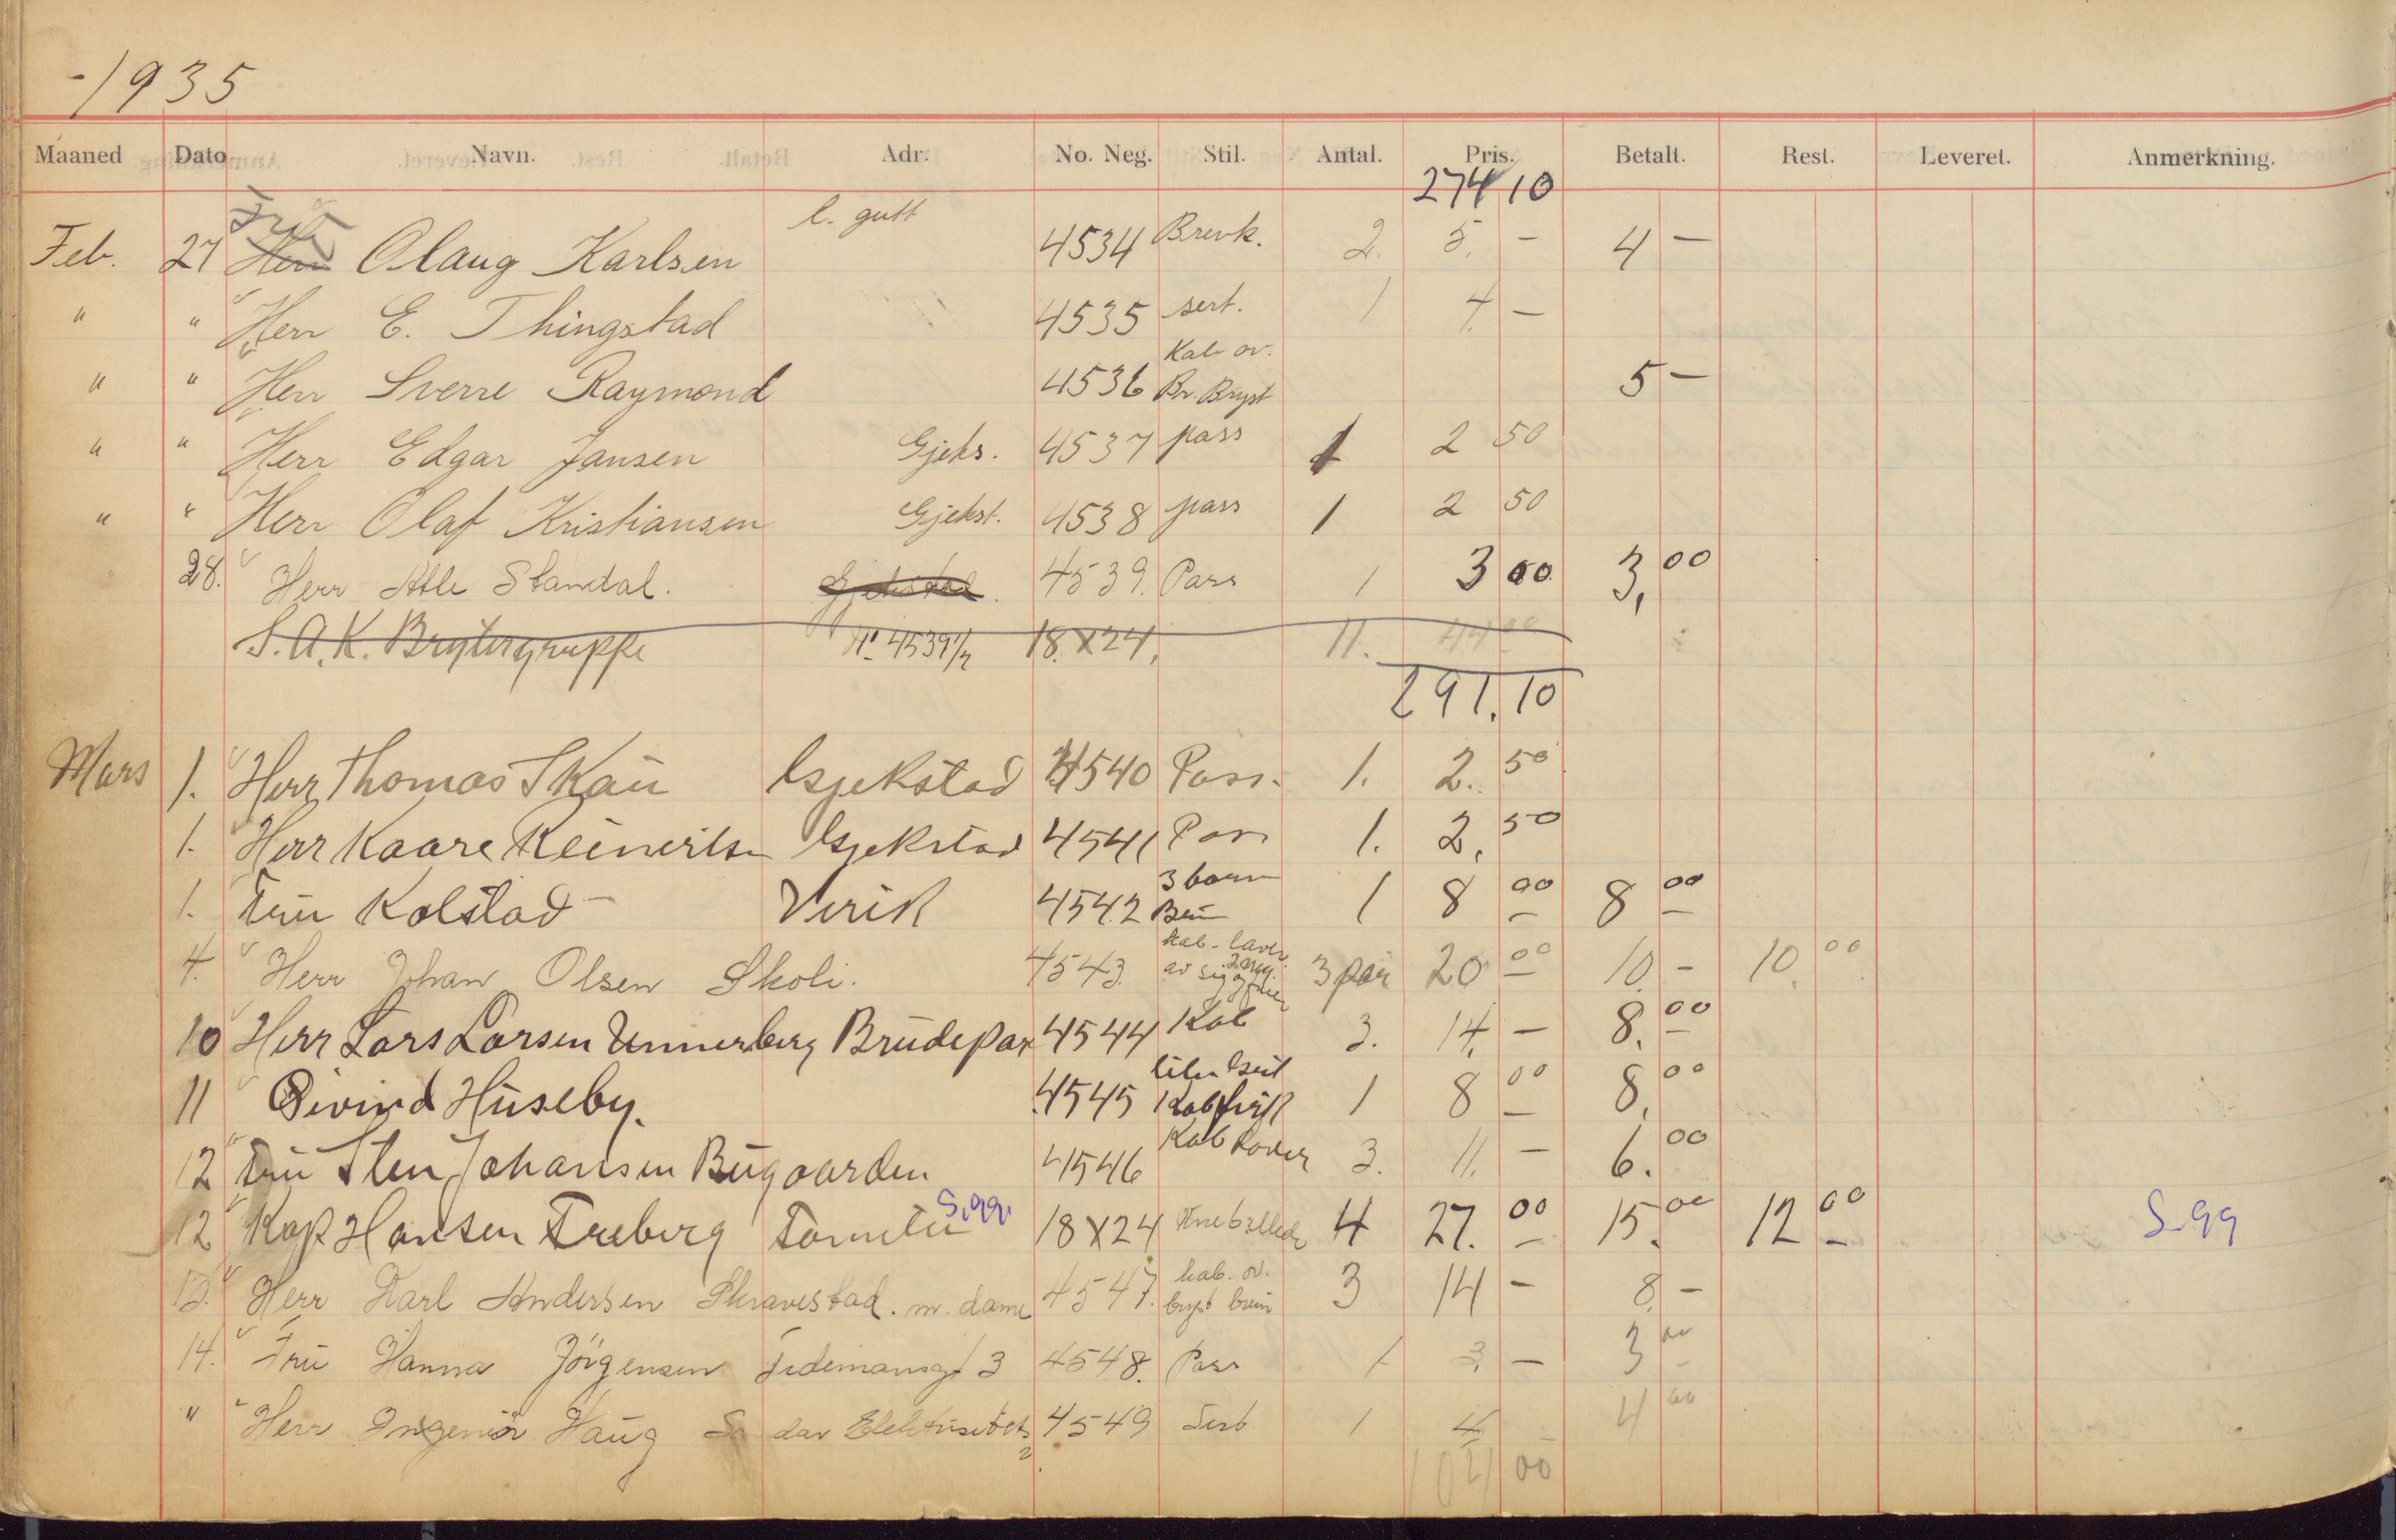 -1935
Maaned Dato Navn. Adr. No. Neg. Stil. Antal. Pris. Betalt. Rest. Leveret. Anmerkning.
274 10
Feb. 27 Herr Frk Olaug Karlsen l. gutt 4534 Brevk. 2. 5. – 4 –
" " Herr E. Thingstad 4535 sert. 1 4. –
" " Herr Sverre Raymond 4536 Kab ov. Br. Bryst 5 –
" " Herr Edgar Jansen Gjeks. 4537 pass 1 2 50
" " Herr Olaf Kristiansen Gjekst. 4538 pass 1 2 50
28. Herr Atle Standal. Gjekstad. 4539. Pass 1 3 00 3,00
S.A.K. Brytergruppe No 4539 1/2 18 X 24, 11. 44 00
291.10
Mars 1. Herr Thomas Skau Gjekstad 4540 Pass. 1. 2. 50
1. Herr Kaare Reinertsn Gjekstad 4541 Pass 1. 2, 50
1. Fru Kolstad – Virik 4542 3 barn 1 8 00 8 00
4. Herr Johan Olsen Skoli. 4543. Kab. av sig 2 neg. 3 par 20 00 10. – 10. 00
10 Herr Lars Larsen Unnerberg Brudepar 4544 Kab 3. 14. – 8. 00
11 Øivind Huseby. 4545 Kab 1 8 00 8, 00
12 Fru Sten Johansen Bugaarden 4546 Kab 3. 11. – 6. 00
12 Kapt Hansen Freberg Familie S.99. 18 X 24 Knebillede 4 27. 00 15. 00 12 00 S.99
13. Herr Karl Andersen Skravestad. m. dame 4547. kab. ov. bryst brun 3 14 – 8. –
14. Fru Hanna Jörgensen Tidemansgt 3 4548. Pass 1 3. – 3 00
" Herr Ingeniör Haug Sandar Elektrisitets 4549 Sert 1 4 4 00
104 00